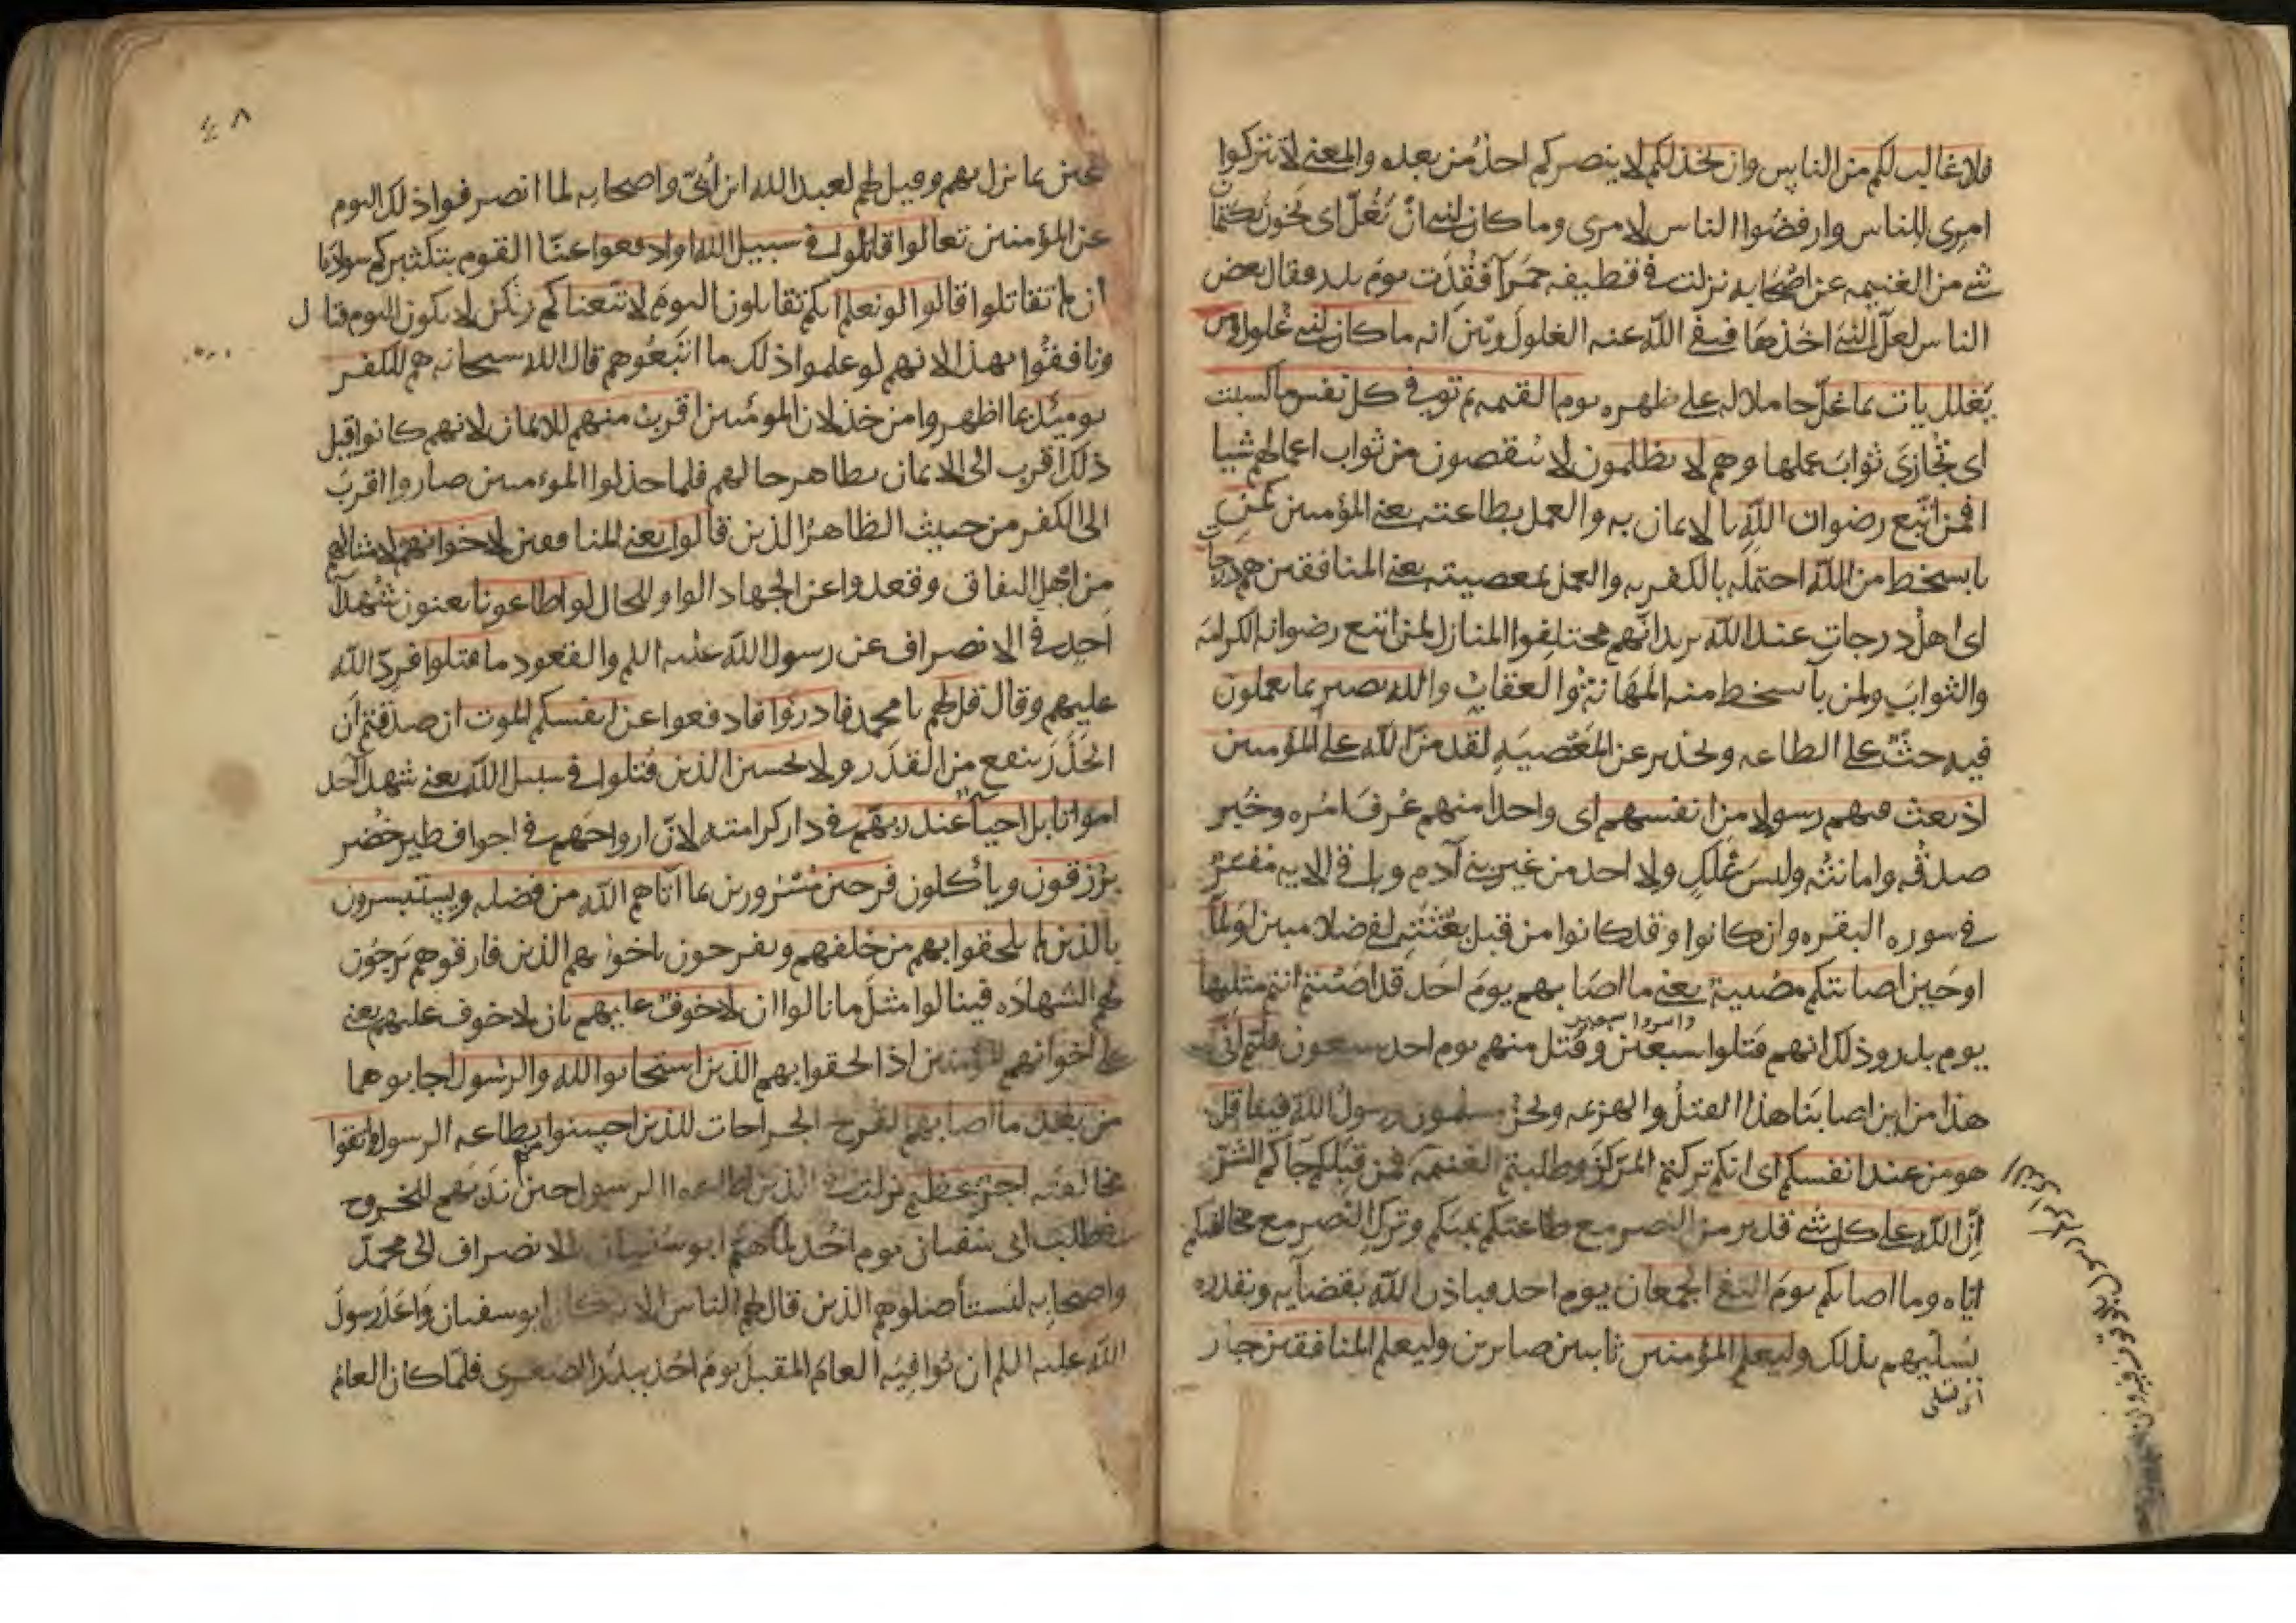 فلا غالب لكم من الناس وان يخذلكم لا ينصركم احد من بعده والمعنى لا تتركوا
امرى للناس وارفضوا الناس لامرى وما كان لنبي ان يغل اى يخون بكتمان
شي من الغنيمه عن اصحابه نزلت في قطيفه حمرآ فقدت يوم بدر فقال بعض
الناس لعل النبي اخذها فنفى الله عنه الغلول وبين انه ما كان لنبي غلول ومن
يغلل يات بما غل حاملا له على ظهره يوم القيمه ثم توفى كل نفس ما كسبت
اى تجازى ثواب عملها وهم لا يظلمون لا ينقصون من ثواب اعمالهم شيا
افمن اتبع رضوان الله بالايمان به والعمل بطاعته يعنى المؤمنين كمن
با بسخط من الله احتمله بالكفر به والعمل بمعصيته يعنى المنافقين هم درجات
اى اهل درجات عند الله يريد انهم مختلفوا المنازل لمن اتبع رضوانه الكرامه
والثواب ولمن بآ بسخط منه المهانة والعقاب والله بصير بما يعملون
فيه حث على الطاعه وتحذير عن المعصيه لقد من الله على المؤمنين
اذ بعث فيهم رسولا من انفسهم اى واحدا منهم عرف امره وخبر
صدقه وامانته وليس بملك ولا احد من غير بنى آدم وباقى الايه مفسر
في سوره البقره وان كانوا وقد كانوا من قبل بعثته لفى ضلال مبين اولما
اوحين اصابتكم مصيبة يعنى ما اصابهم يوم احد قد اصبتم انتم مثليها
يوم بدر وذلك انهم قتلوا سبعين واسروا سبعين وقتل منهم يوم احد سبعون قلتم انى
هذا من اين اصابنا هذا القتل والهزيمه ونحن مسلمون ورسول الله فينا قل
هو من عند انفسكم اى انكم تركتم المركز وطلبتم الغنيمه فمن قبلكم جآكم الشر
ان الله على كل شى قدير من النصر مع طاعتكم نبيكم وترك النصر مع مخالفتكم
اياه وما اصابكم يوم التقى الجمعان يوم احد فباذن الله بقضايه وبقدره
يسليهم بذلك وليعلم المؤمنين ثابتين صابرين وليعلم المنافقين جاز
٤٨
عين بما نزل بهم وقيل لهم لعبد الله ابن ابىّ واصحابه لما انصرفوا ذلك اليوم
عن المؤمنين تعالوا قاتلوا في سبيل الله او ادفعوا عنا القوم بتكثيركم سوادنا
ان لم تقاتلوا قالوا لو نعلم انكم تقاتلون اليوم لاتبعناكم ولكن لا يكون اليوم قتال
ونافقوا بهذا لانهم لو علموا ذلك ما اتبعوهم قال الله سبحانه هم للكفر
يوميذ بما اظهروا من خذلان المومنين اقرب منهم للايمان لانهم كانوا قبل
ذلك اقرب الى الايمان بظاهر حالهم فلما خذلوا المومنين صاروا اقرب
الى الكفر من حيث الظاهر الذين قالوا يعنى المنافقين لاخوانهم لامثالهم
من اهل النفاق وقعدوا عن الجهاد الواو للحال لو اطاعونا يعنون شهدآ
احد في الانصراف عن رسول الله عليه السلم والقعود ما قتلوا فرد الله
عليهم وقال قل لهم يا محمد فادرؤا فادفعوا عن انفسكم الموت ان صدقتم ان
الحذر ينفع من القدر ولا تحسبن الذين قتلوا في سبيل الله يعنى شهدآ احد
امواتا بل احيآ عند ربهم في دار كرامته لان ارواحهم في اجواف طير خضر
يرزقون وياكلون فرحين مسرورين بما آتاهم الله من فضله ويستبشرون
بالذين لم يلحقوا بهم من خلفهم ويفرحون باخوانهم الذين فارقوهم يرجون
لهم الشهاده فينالوا مثل ما نالوا ان لا خوف عليهم بان لا خوف عليهم يعنى
على اخوانهم المؤمنين اذا لحقوا بهم الذين استجابوا لله والرسول اجابوهما
من بعد ما اصابهم القرح الجراحات للذين احسنوا منهم بطاعه الرسول واتقوا
مخالفته اجر عظيم نزلت في الذين اطاعوا الرسول حين ندبهم للخروج
لطلب ابى سفيان يوم احد لما هم ابو سفيان بالانصراف الى محمد
واصحابه ليستأصلوهم الذين قال لهم الناس الايه كان ابو سفيان واعد رسول
الله عليه السلم ان يوافيه العام المقبل يوم احد ببدر الصغرى فلما كان العام